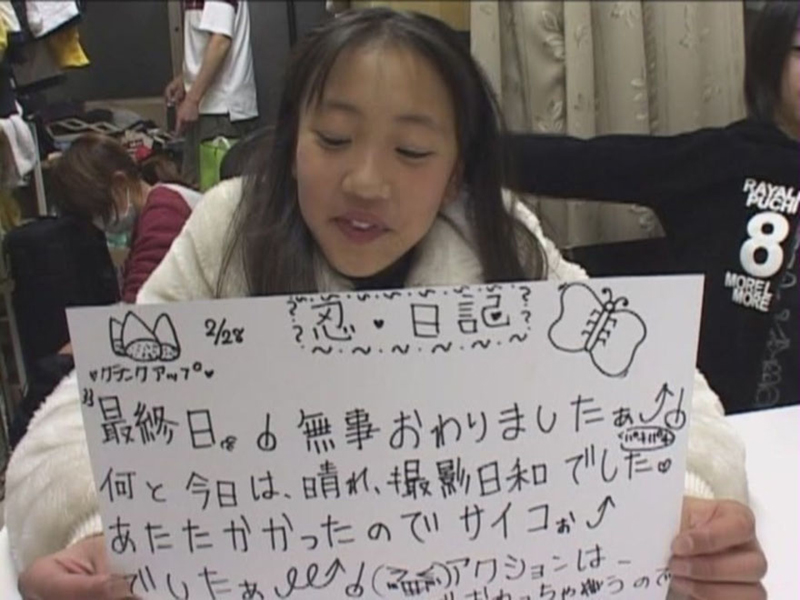 2/28
忍・日記
♥クランクアップ♥
最終日。無事おわりましたぁ
何と今日は、晴れ、撮影日和でした。♡
パチパチ
あたたかかったのでサイコぉ
でしたぁ アクションは、
おわっちゃうので
RAYALI
PUCHI
8
MOREL
MORE